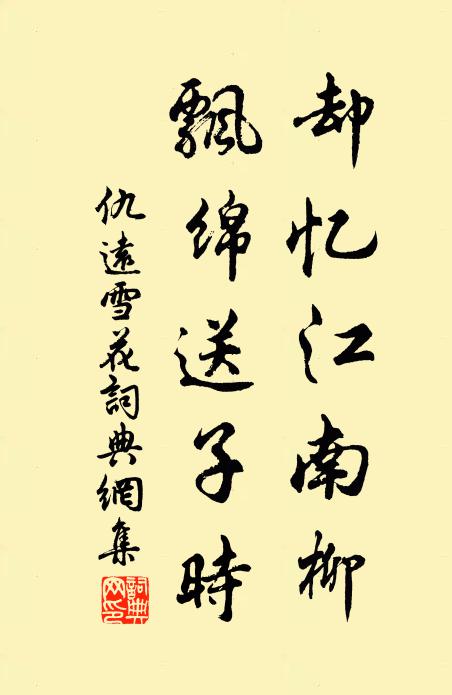 却忆江南柳
飘绵送子时
仇遠雪花詞典網集
詞典网印